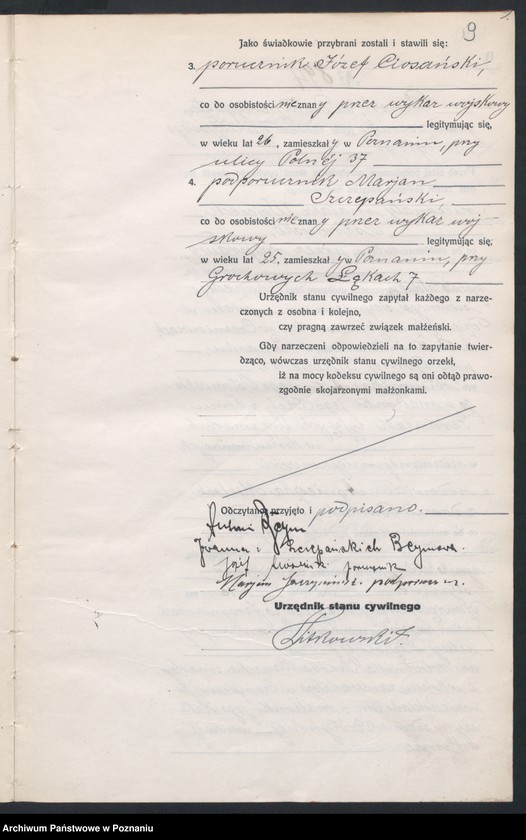 9
Jako świadkowie przybrani zostali i stawili się:
3. porucznik Józef Ciosański,
co do osobistości nieznany przez wykaz wojskowy
legitymując się,
w wieku lat 26, zamieszkały w Poznaniu, przy
ulicy Polnej 37
4. podporucznik Marjan
Szczepański,
co do osobistości nieznany przez wykaz woj-
skowy legitymując się,
w wieku lat 25, zamieszkały w Poznaniu, przy
Grochowych Łąkach 7
Urzędnik stanu cywilnego zapytał każdego z narze-
czonych z osobna i kolejno,
czy pragną zawrzeć związek małżeński.
Gdy narzeczeni odpowiedzieli na to zapytanie twier-
dząco, wówczas urzędnik stanu cywilnego orzekł,
iż na mocy kodeksu cywilnego są oni odtąd prawo-
zgodnie skojarzonymi małżonkami.
Odczytano, przyjęto i podpisano.
Antoni
Joanna z Szczepańskich Beymowa.
Józef porucznik
Marjan podporucznik.
Urzędnik stanu cywilnego
Archiwum Państwowe w Poznaniu